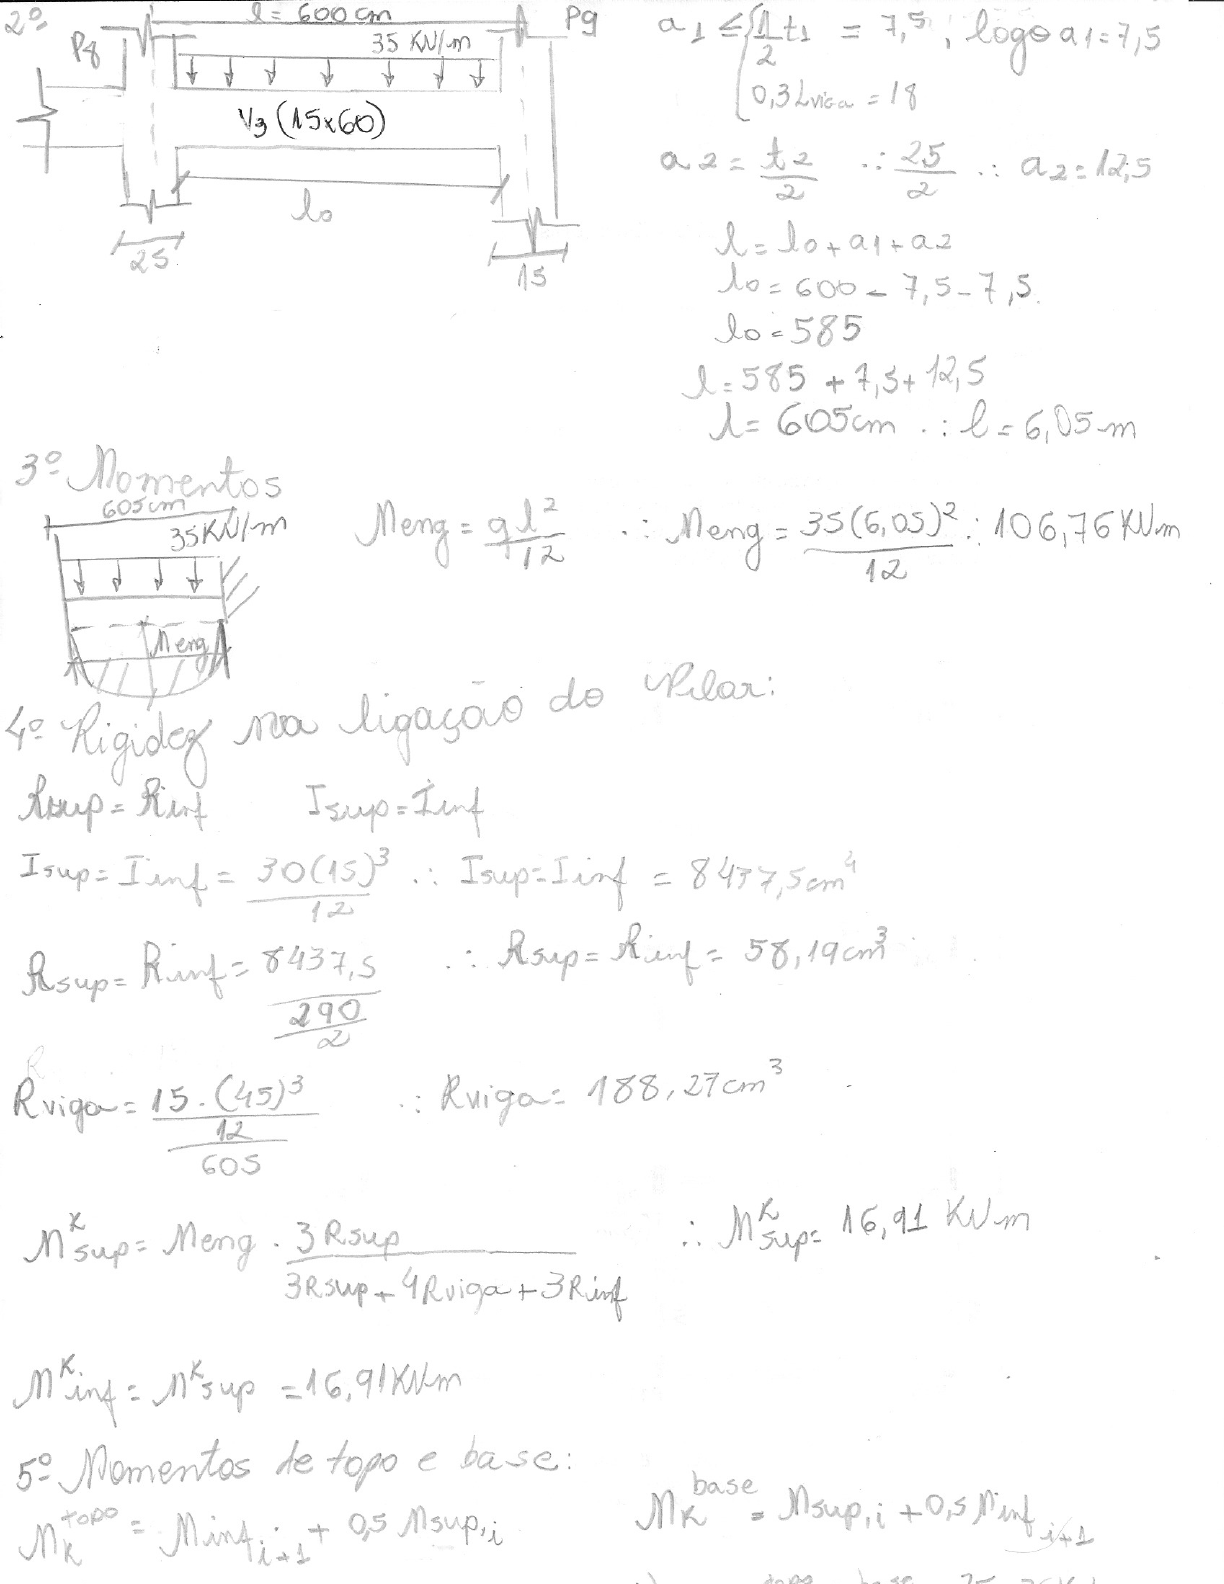 2º
l = 600 cm
P8
P9
35 KN/m
V3 (15x60)
lo
25
15
a1 ≤ { 1/2 t1 = 7,5 ; logo a1 = 7,5
0,3 Lviga = 18
a2 = t2/2 ∴ 25/2 ∴ a2 = 12,5
l = lo + a1 + a2
lo = 600 - 7,5 - 7,5.
lo = 585
l = 585 + 7,5 + 12,5
l = 605cm ∴ l = 6,05 m
3º Momentos
605cm
35KN/m
Meng
Meng = ql²/12 ∴ Meng = 35(6,05)²/12 ∴ 106,76 KNm
4º Rigidez na ligação do Pilar:
Rsup = Rinf Isup = Iinf
Isup = Iinf = 30(15)³/12 ∴ Isup = Iinf = 8437,5cm⁴
Rsup = Rinf = 8437,5/(290/2) ∴ Rsup = Rinf = 58,19cm³
Rviga = (15.(45)³/12)/605 ∴ Rviga = 188,27cm³
Mᴷsup = Meng . 3Rsup/(3Rsup + 4Rviga + 3Rinf) ∴ Mᴷsup = 16,91 KNm
Mᴷinf = Mᴷsup = 16,91KNm
5º Momentos de topo e base:
Mk topo = Minf i+1 + 0,5 Msup,i Mk base = Msup,i + 0,5 Minf i+1